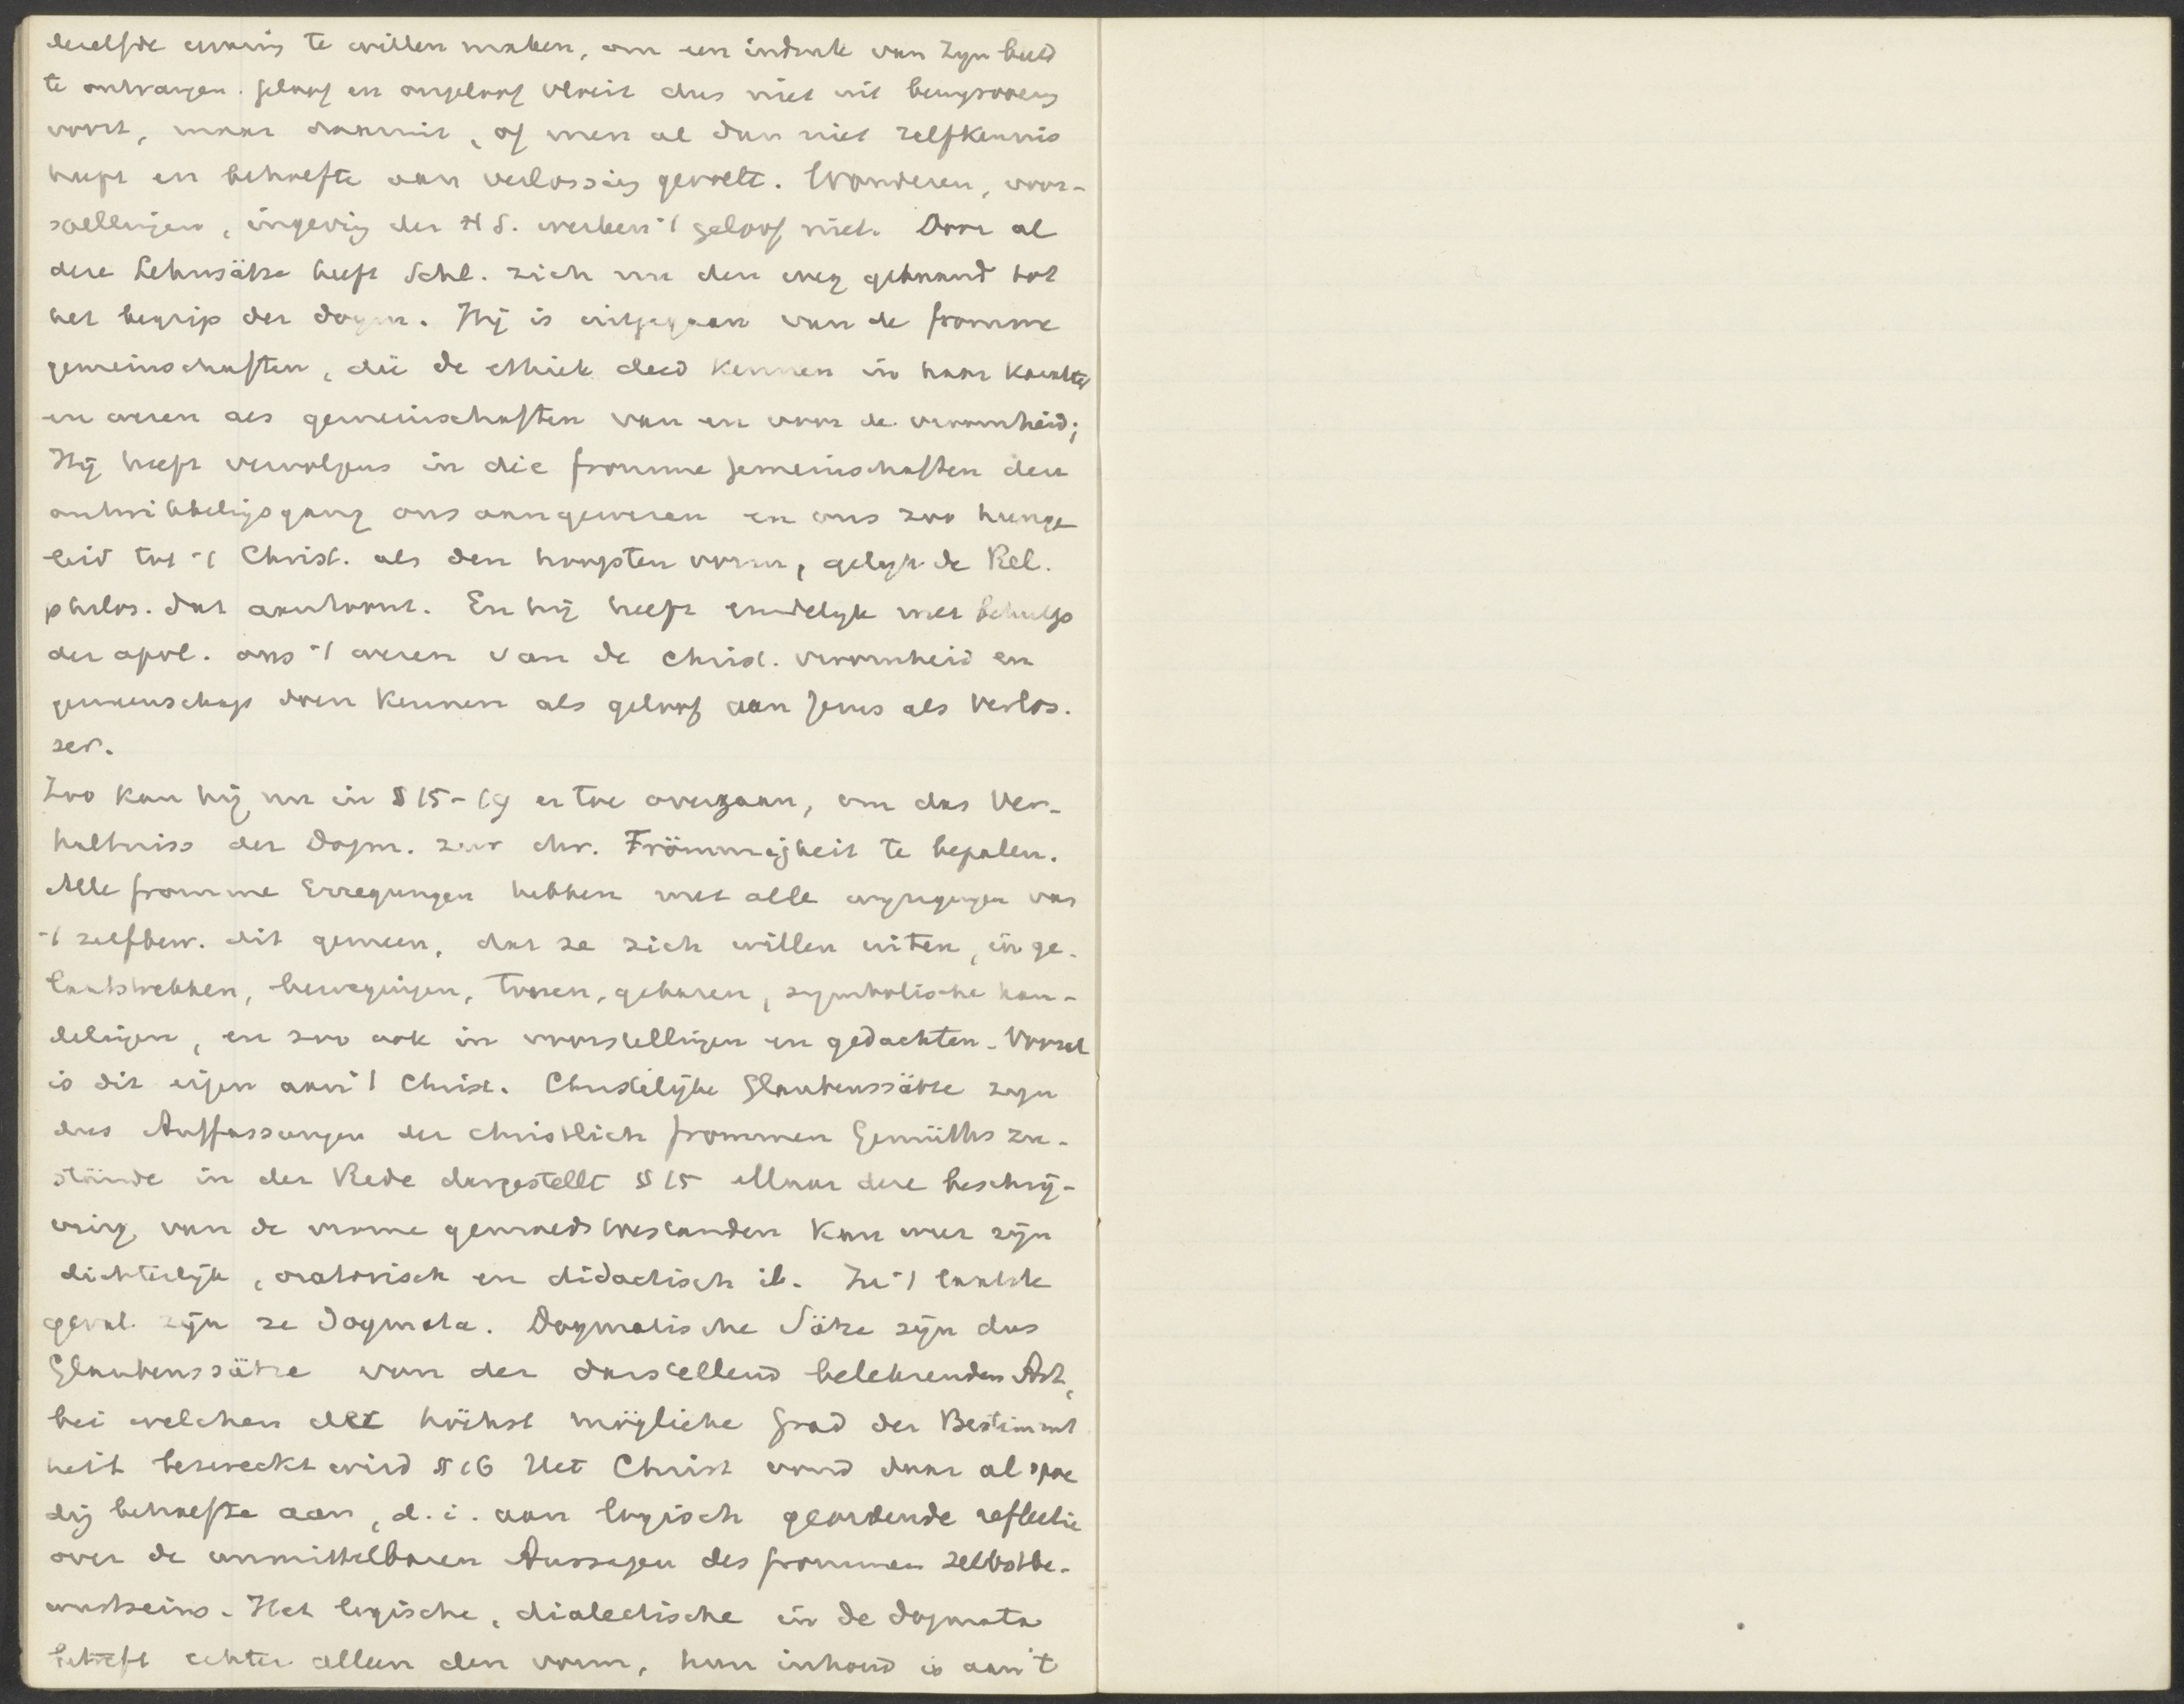 dezelfde ervaring te willen maken, om een indruk van zyn beeld
te ontvangen. geloof en ongeloof vloeit dus niet uit bewysvoering
voort, maar daaruit, of men al dan niet zelfkennis
heeft en behoefte aan verlossing gevoelt. Wonderen, voor-
spellingen, ingeving der H S. werken 't geloof niet. Door al
deze Lehnsätze heeft Schl. zich nu den weg gebaand tot
het begrip der dogm. Hij is uitgegaan van de fromme
gemeinschaften, die de ethiek deed kennen in haar karakter
en wezen als gemeinschaften van en voor de vroomheid;
Hij heeft vervolgens in die fromme gemeinschaften den
ontwikkelingsgang ons aangewezen en ons zoo heenge
leid tot 't Christ. als den hoogsten vorm, gelyk de Rel.
philos. dat aantoont. En hij heeft eindelyk met behulp
der apol. ons 't wezen van de christ. vroomheid en
gemeenschap doen kennen als geloof aan Jezus als Verlos.
ser.
Zoo kan hij nu in § 15-19 er toe overgaan, om das Ver-
haltniss der Dogm. zur chr. Frömmigkeit te bepalen.
Alle fromme Erregungen hebben met alle opgewegingen van
't zelfbew. dit gemeen, dat ze zich willen uiten, in ge-
laatstrekken, bewegingen, tonen, gebaren, symbolische han-
delingen, en zoo ook in voorstellingen en gedachten. Vooral
is dit eigen aan 't Christ. Christelijke Glaubenssätze zyn
dus Auffassungen der christlich frommen Gemüths zu-
stände in der Rede dargestellt § 15 Maar deze beschrij-
ving van de vrome gemoedstoestanden kan weer zijn
dichterlijk, oratorisch en didactisch ib. In 't laatste
geval zijn ze Dogmata. Dogmatische Sätze zijn dus
Glaubenssätze von der darstellend belehrenden Art,
bei welchen der höchst mögliche Grad der Bestimmt
heit bezweckt wird § 16 Het Christ vond daar al spoe
dig behoefte aan, d. i. aan logisch geordende reflectie
over de unmittelbaren Aussagen des frommen Selbstbe-
wustseins. Het logische, dialectische in de dogmata
betreft echter alleen den vorm, hun inhoud is aan 't